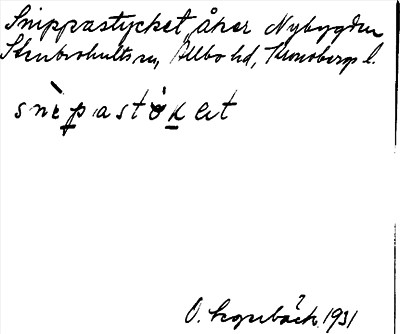 Snippastycket, åker Nybygden
Stenbrohults sn, Allbo hd, Kronobergs l.
snèpastø̀ket
O. 1931